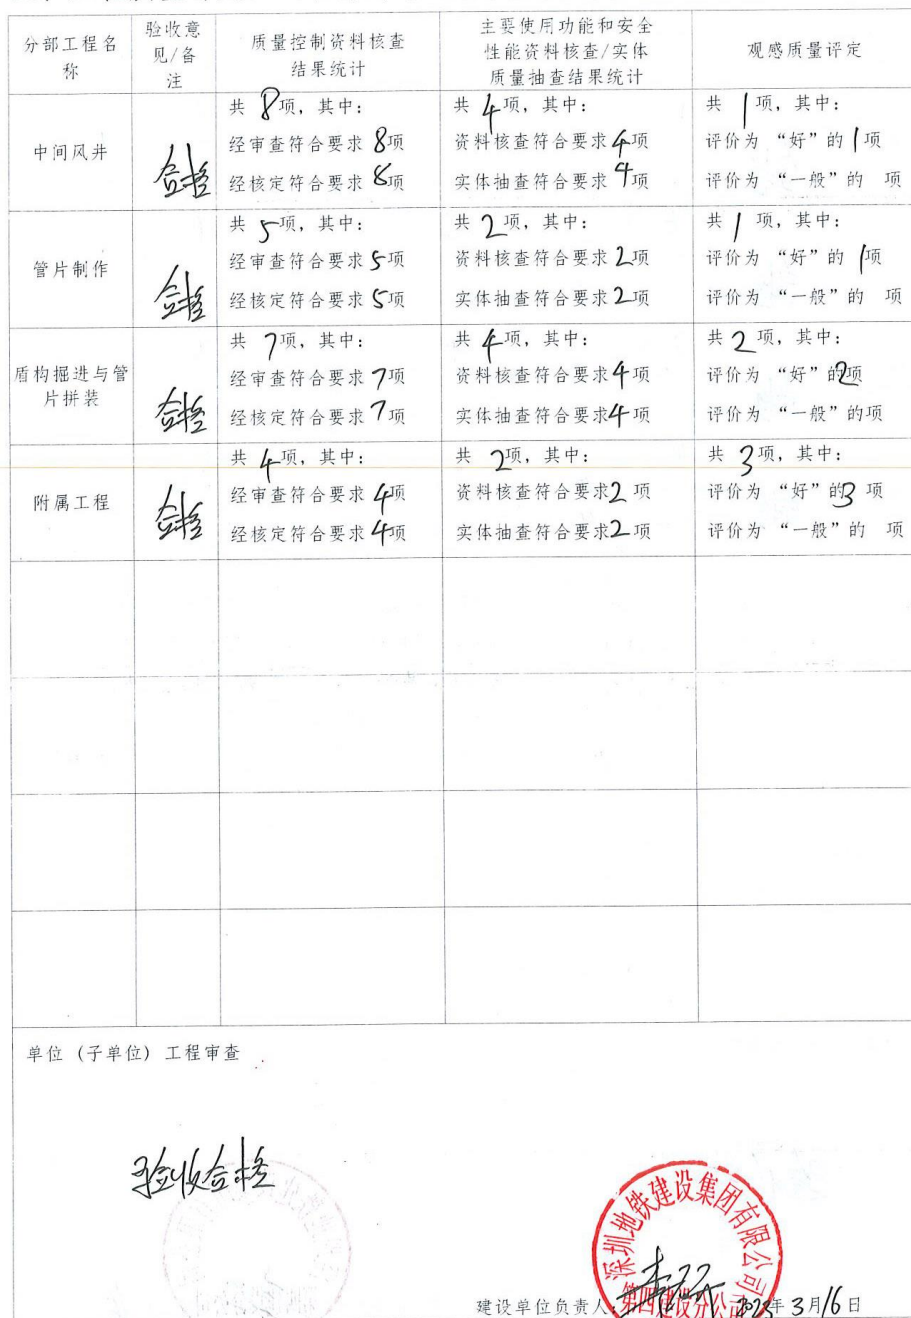 分部工程名
称
验收意
见/备
注
质量控制资料核查
结果统计
主要使用功能和安全
性能资料核查/实体
质量抽查结果统计
观感质量评定
中间风井
合格
共 8项，其中：
经审查符合要求 8项
经核定符合要求 8项
共 4项，其中：
资料核查符合要求 4项
实体抽查符合要求 4项
共 1项，其中：
评价为 “好”的 1项
评价为 “一般”的 项
管片制作
合格
共 5项，其中：
经审查符合要求 5项
经核定符合要求 5项
共 2项，其中：
资料核查符合要求 2项
实体抽查符合要求 2项
共 1 项，其中：
评价为 “好”的 1项
评价为 “一般”的 项
盾构掘进与管
片拼装
合格
共 7项，其中：
经审查符合要求 7项
经核定符合要求 7项
共 4项，其中：
资料核查符合要求 4项
实体抽查符合要求 4项
共 2 项，其中：
评价为 “好”的2项
评价为 “一般”的项
附属工程
合格
共 4项，其中：
经审查符合要求 4项
经核定符合要求 4项
共 2项，其中：
资料核查符合要求2 项
实体抽查符合要求2 项
共 3项，其中：
评价为 “好”的3 项
评价为 “一般”的 项
单位（子单位）工程审查
验收合格
深圳地铁建设集团有限公司
第四建设分公司
建设单位负责人： 年 3月16日